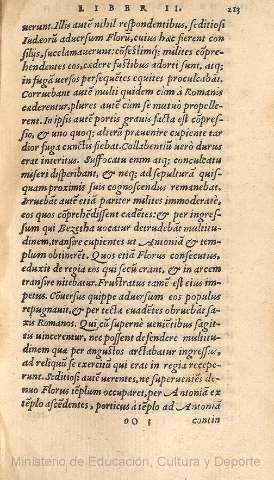 LIBER II. 213
uerunt. Illis autē nihil respondentibus, seditiosi
Iudæorū aduersum Florū, cuius hæc fierent con
silijs, succlamauerunt: cōfestimq; milites cōpre-
hendentes eos, cædere fustibus adorti sunt, atq;
in fugā uersos persequētes equites proculcabāt.
Corruebant autē multi quidem cum à Romanis
cæderentur, plures autē cum se mutuò propelle-
rent. In ipsis autē portis grauis facta est compres
sio, & uno quoq; alterū præuenire cupiente tar
dior fuga cunctis fiebat. Collabentiū uerò durus
erat interitus. Suffocatu enim atq; conculcatu
miseri disperibant, & neq; ad sepulturā quis-
quam proximis suis cognoscendus remanebat.
Irruebāt autē etiā pariter milites immoderatè,
eos quos cōprehēdissent cædētes: & per ingres-
sum qui Bezetha uocatur detrudebāt multitu-
dinem, transire cupientes ut Antoniā & tem-
plum obtinerēt. Quos etiā Florus consecutus,
eduxit de regia eos qui secū erant, & in arcem
transire nitebatur. Frustratus tamē est eius im-
petus. Cōuersus quippe aduersum eos populus
repugnauit, & per tecta euadētes obruebāt sa-
xis Romanos. Qui cū supernè ueniētibus sagit
tis uincerentur, nec possent defendere multitu-
dinem quæ per angustos arctabatur ingressus,
ad reliquū se exercitū qui erat in regia recepe-
runt. Seditiosi autē uerentes, ne superueniēs de-
nuo Florus tēplum occuparet, per Antoniā ex
tēplo ascēdentes, porticus à tēplo ad Antoniā
contin
Ministerio de Educación, Cultura y Deporte